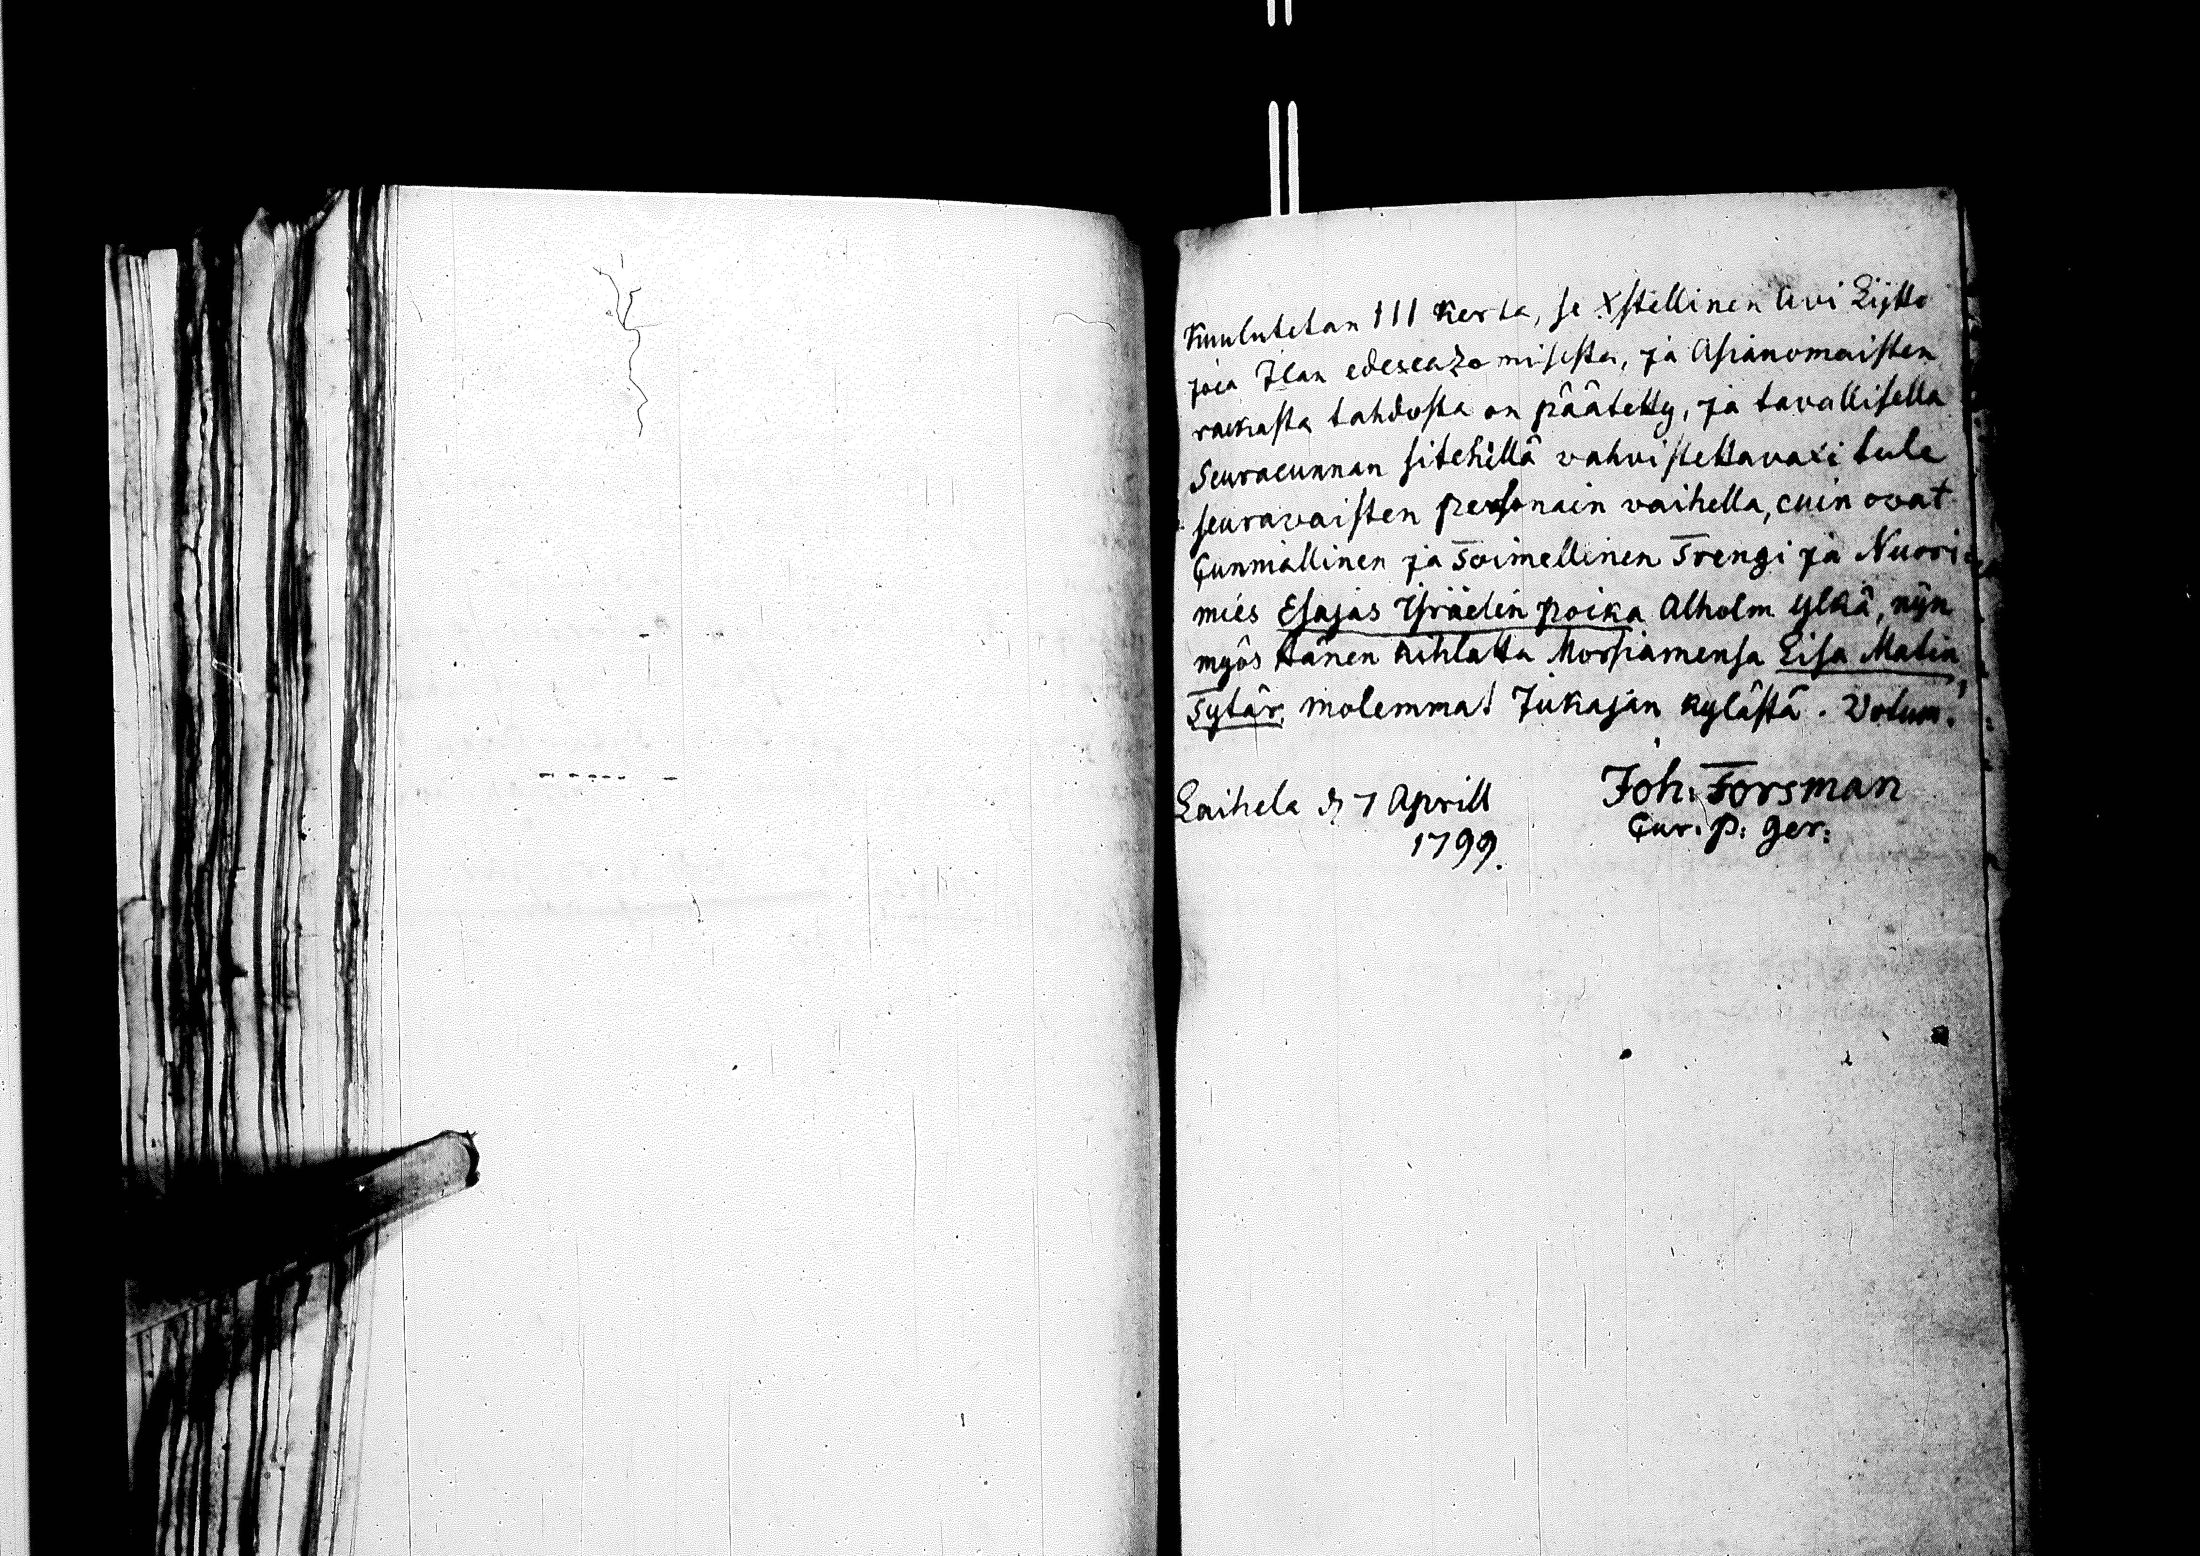 Kuulutetan III Kerta, se Xstellinen Avi Lijtto
joca Ilan edescazomisesta, ja Asianomaisten
rackasta tahdosta on päätetty, ja tavallisella
Seuracunnan sitehillä vahvistettavaxi tule
seuravaisten personain vaihella, cuin ovat
Cunniallinen ja Toimellinen Trengi ja Nuori
mies Esajas Isräelin poika Alholm Ylkä, nijn
myös hänen kihlattu Morsiamensa Lisa Matin
Tytär, molemmat Jukajan kylästä. Votum.
Laihela d. 7 Aprill
1799.
Joh. Forsman
Cur. p. ger: